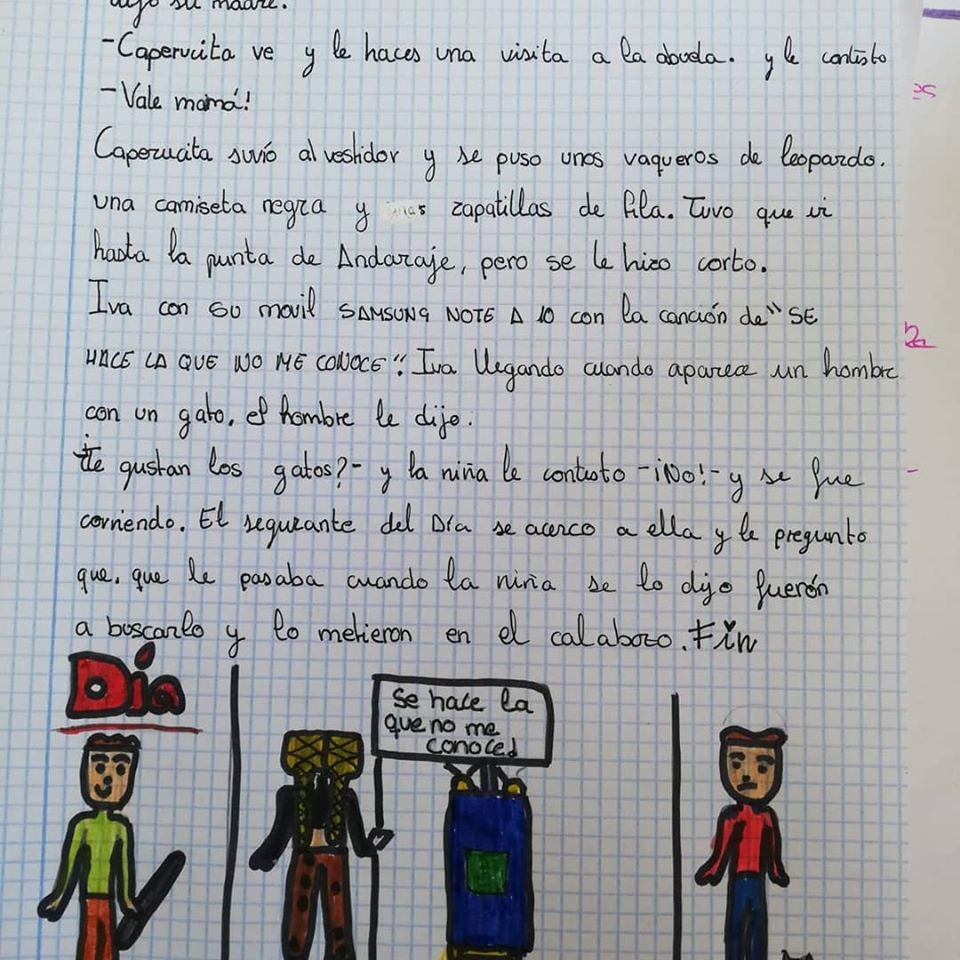 dijo su madre.
-Caperucita ve y le haces una visita a la abuela. y le contisto
-Vale mamá!
Caperucita suvío al vestidor y se puso unos vaqueros de leopardo.
una camiseta negra y unas zapatillas de fila. Tuvo que ir
hasta la punta de Andaraje, pero se le hizo corto.
Iva con su movil SAMSUNG NOTE A 10 con la canción de "SE
HACE LA QUE NO ME CONOCE". Iva llegando cuando aparece un hombre
con un gato, el hombre le dijo.
te gustan los gatos?- y la niña le contesto -¡No!- y se fue
corriendo. El segurante del Día se acerco a ella y le pregunto
que, que le pasaba cuando la niña se lo dijo fuerón
a buscarlo y lo metieron en el calabozo. Fin
Día
Se hace la
que no me
conoce♩